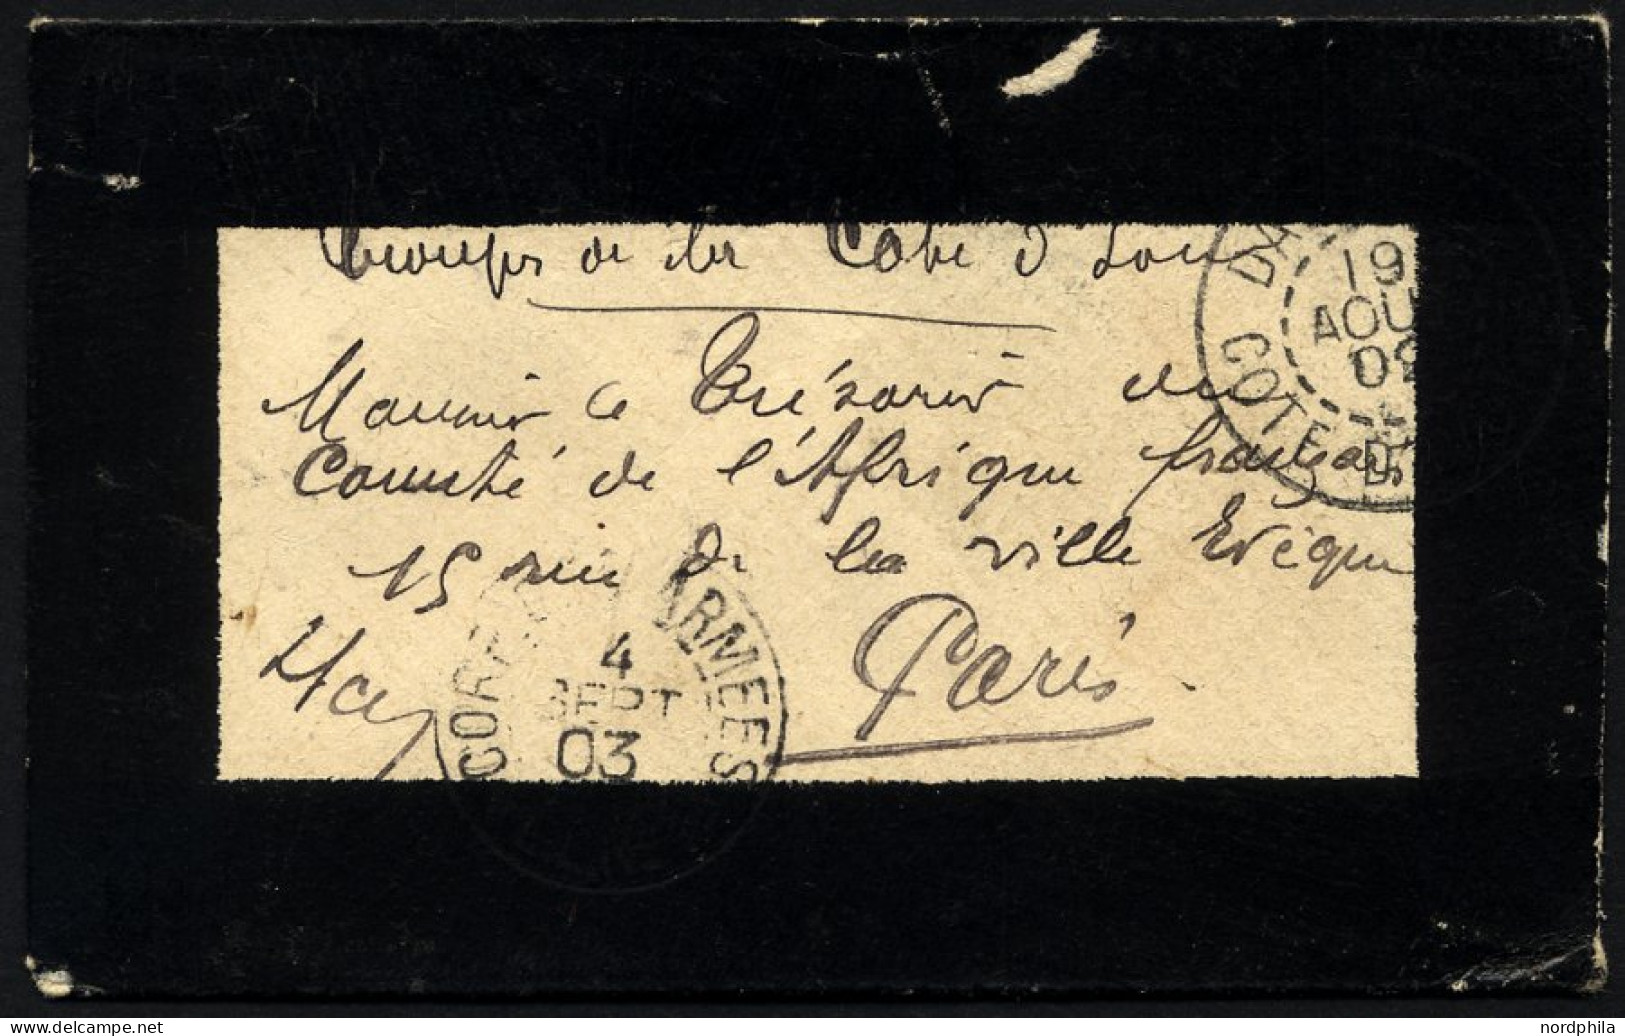 Troupes de la Côte d'Ivoi
Monsieur le Trésorier du
Comité de l'Afrique français
15 rue de la ville Evêque
Paris
DA
19
AOU
09
COTE D'
CORR ARMEES
4
SEPT
03
nordphila